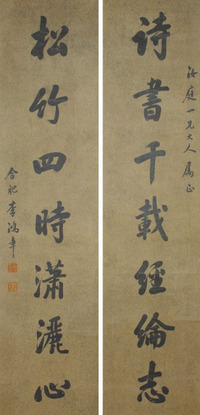 汝庭一兄大人属正
诗書千載經綸志
松竹四時瀟灑心
合肥李鴻章